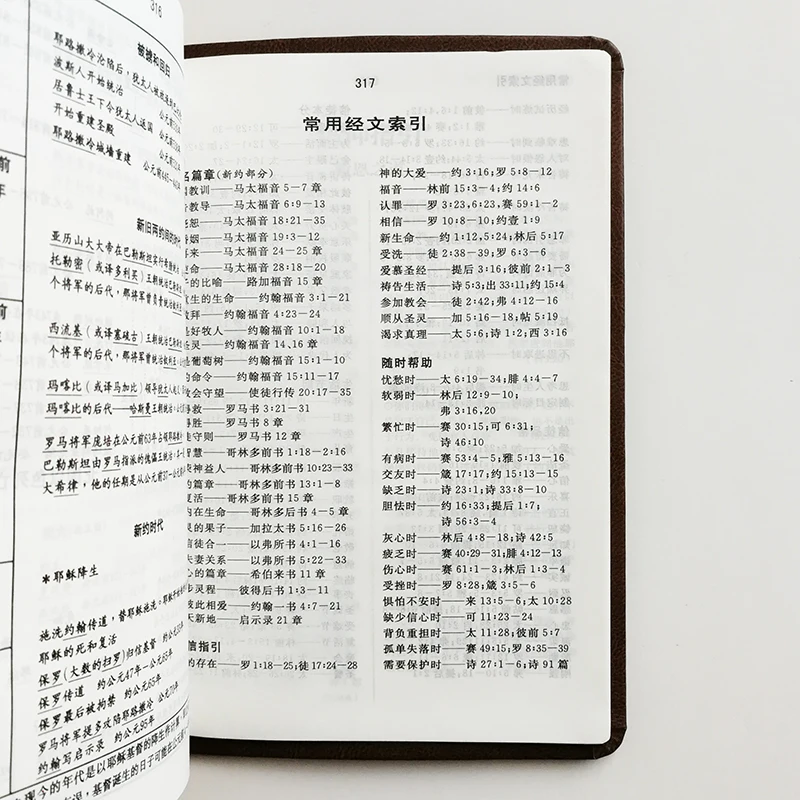 316
被掳和回归
耶路撒冷沦陷后，犹太人被
波斯人开始统治
居鲁士王下令犹太人返国
开始重建圣殿
耶路撒冷城墙重建
新旧两约间的
亚历山大大帝在巴勒斯坦实行
托勒密（或译多利买）王朝统治
个将军的后代，那将军曾
西流基（或译塞琉古）王朝统治
个将军的后代，那将军曾统治
玛喀比（或译马加比）领导犹太人
玛喀比的后代——哈斯曼王朝统治
罗马将军庞培在公元前63年占领耶路
巴勒斯坦由罗马指派的傀儡王统治：
大希律，他的任期是从公元前37—公元前
新约时代
*耶稣降生
施洗约翰传道，替耶稣施洗；耶稣开
耶稣的死和复活
保罗（大数的扫罗）归信基督
保罗传道 约公元47年—公元65年
保罗最后被拘禁 约公元65年
罗马将军提多攻陷耶路撒冷 公元70年
约翰写启示录 约公元95年
现今的年代是以耶稣基督的降生作计算，
基督诞生的日子可能在公元
前
年
前
317
常用经文索引
名篇章（新约部分）
教训——马太福音 5－7 章
教导——马太福音 6:9－13
恕——马太福音 18:21－35
婚姻——马太福音 19:3－12
再来——马太福音 24－25 章
使命——马太福音 28:18－20
子的比喻——路加福音 15 章
重生的生命——约翰福音 3:1－21
敬拜——约翰福音 4:23－24
是好牧人——约翰福音 10:1－18
圣灵——约翰福音 14、16 章
是葡萄树——约翰福音 15:1－10
的命令——约翰福音 15:11－17
教会守望——使徒行传 20:17－35
得救——罗马书 3:21－31
得胜——罗马书 8 章
徒守则——罗马书 12 章
智慧——哥林多前书 1:18－2:16
荣神益人——哥林多前书 10:23－33
的篇章——哥林多前书 13:1－8
复活——哥林多前书 15 章
内在生命——哥林多后书 4－5 章
灵的果子——加拉太书 5:16－26
信徒合一——以弗所书 4:1－16
夫妻关系——以弗所书 5:22－33
心的篇章——希伯来书 11 章
步灵程——彼得后书 1:3－11
彼此相爱——约翰一书 4:7－21
天新地——启示录 21 章
信指引
的存在——罗 1:18－25；徒 17:24－28
神的大爱——约 3:16；罗 5:8－12
福音——林前 15:3－4；约 14:6
认罪——罗 3:23，6:23，赛 59:1－2
相信——罗 10:8－10；约壹 1:9
新生命——约 1:12，5:24；林后 5:17
受洗——徒 2:38－39；罗 6:3－6
爱慕圣经——提后 3:16；彼前 2:1－3
祷告生活——诗 5:3；出 33:11；约 15:4
参加教会——徒 2:42；弗 4:12－16
顺从圣灵——加 5:16－18；帖 5:19
渴求真理——太 5:6；诗 1:2；西 3:16
随时帮助
忧愁时——太 6:19－34；腓 4:4－7
软弱时——林后 12:9－10；
弗 3:16，20
繁忙时——赛 30:15；可 6:31；
诗 46:10
有病时——赛 53:4－5；雅 5:13－16
交友时——箴 17:17；约 15:13－15
缺乏时——诗 23:1；诗 33:8－10
胆怯时——约 16:33；提后 1:7；
诗 56:3－4
灰心时——林后 4:8－18；诗 42:5
疲乏时——赛 40:29－31；腓 4:12－13
伤心时——赛 61:1－3；林后 1:3－4
受挫时——罗 8:28；箴 3:5－6
惧怕不安时——来 13:5－6；太 10:28
缺少信心时——可 11:23－24
背负重担时——太 11:28；彼前 5:7
孤单失落时——赛 49:15；罗 8:35－39
需要保护时——诗 27:1－6；诗 91 篇